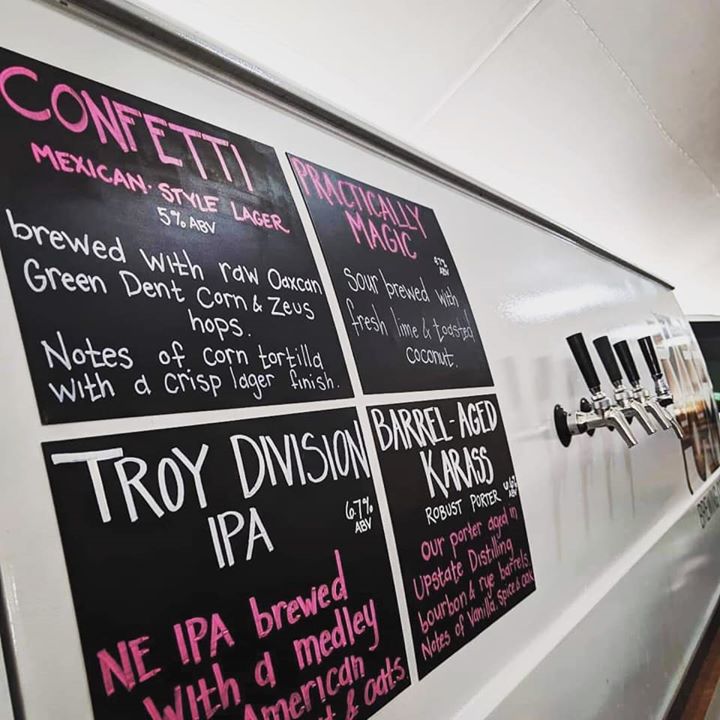 CONFETTI
MEXICAN-STYLE LAGER
5% ABV
brewed with raw Oaxcan
Green Dent Corn & Zeus
hops.
Notes of corn tortilla
with a crisp lager finish.
PRACTICALLY
MAGIC
ABV
Sour brewed with
fresh lime & toasted
coconut.
TROY DIVISION
IPA
6.7%
ABV
NE IPA brewed
with a medley
American
& oats.
BARREL-AGED
KARASS
ROBUST PORTER
ABV
our porter aged in
Upstate Distilling
bourbon & rye barrels.
Notes of Vanilla, Spice & oak